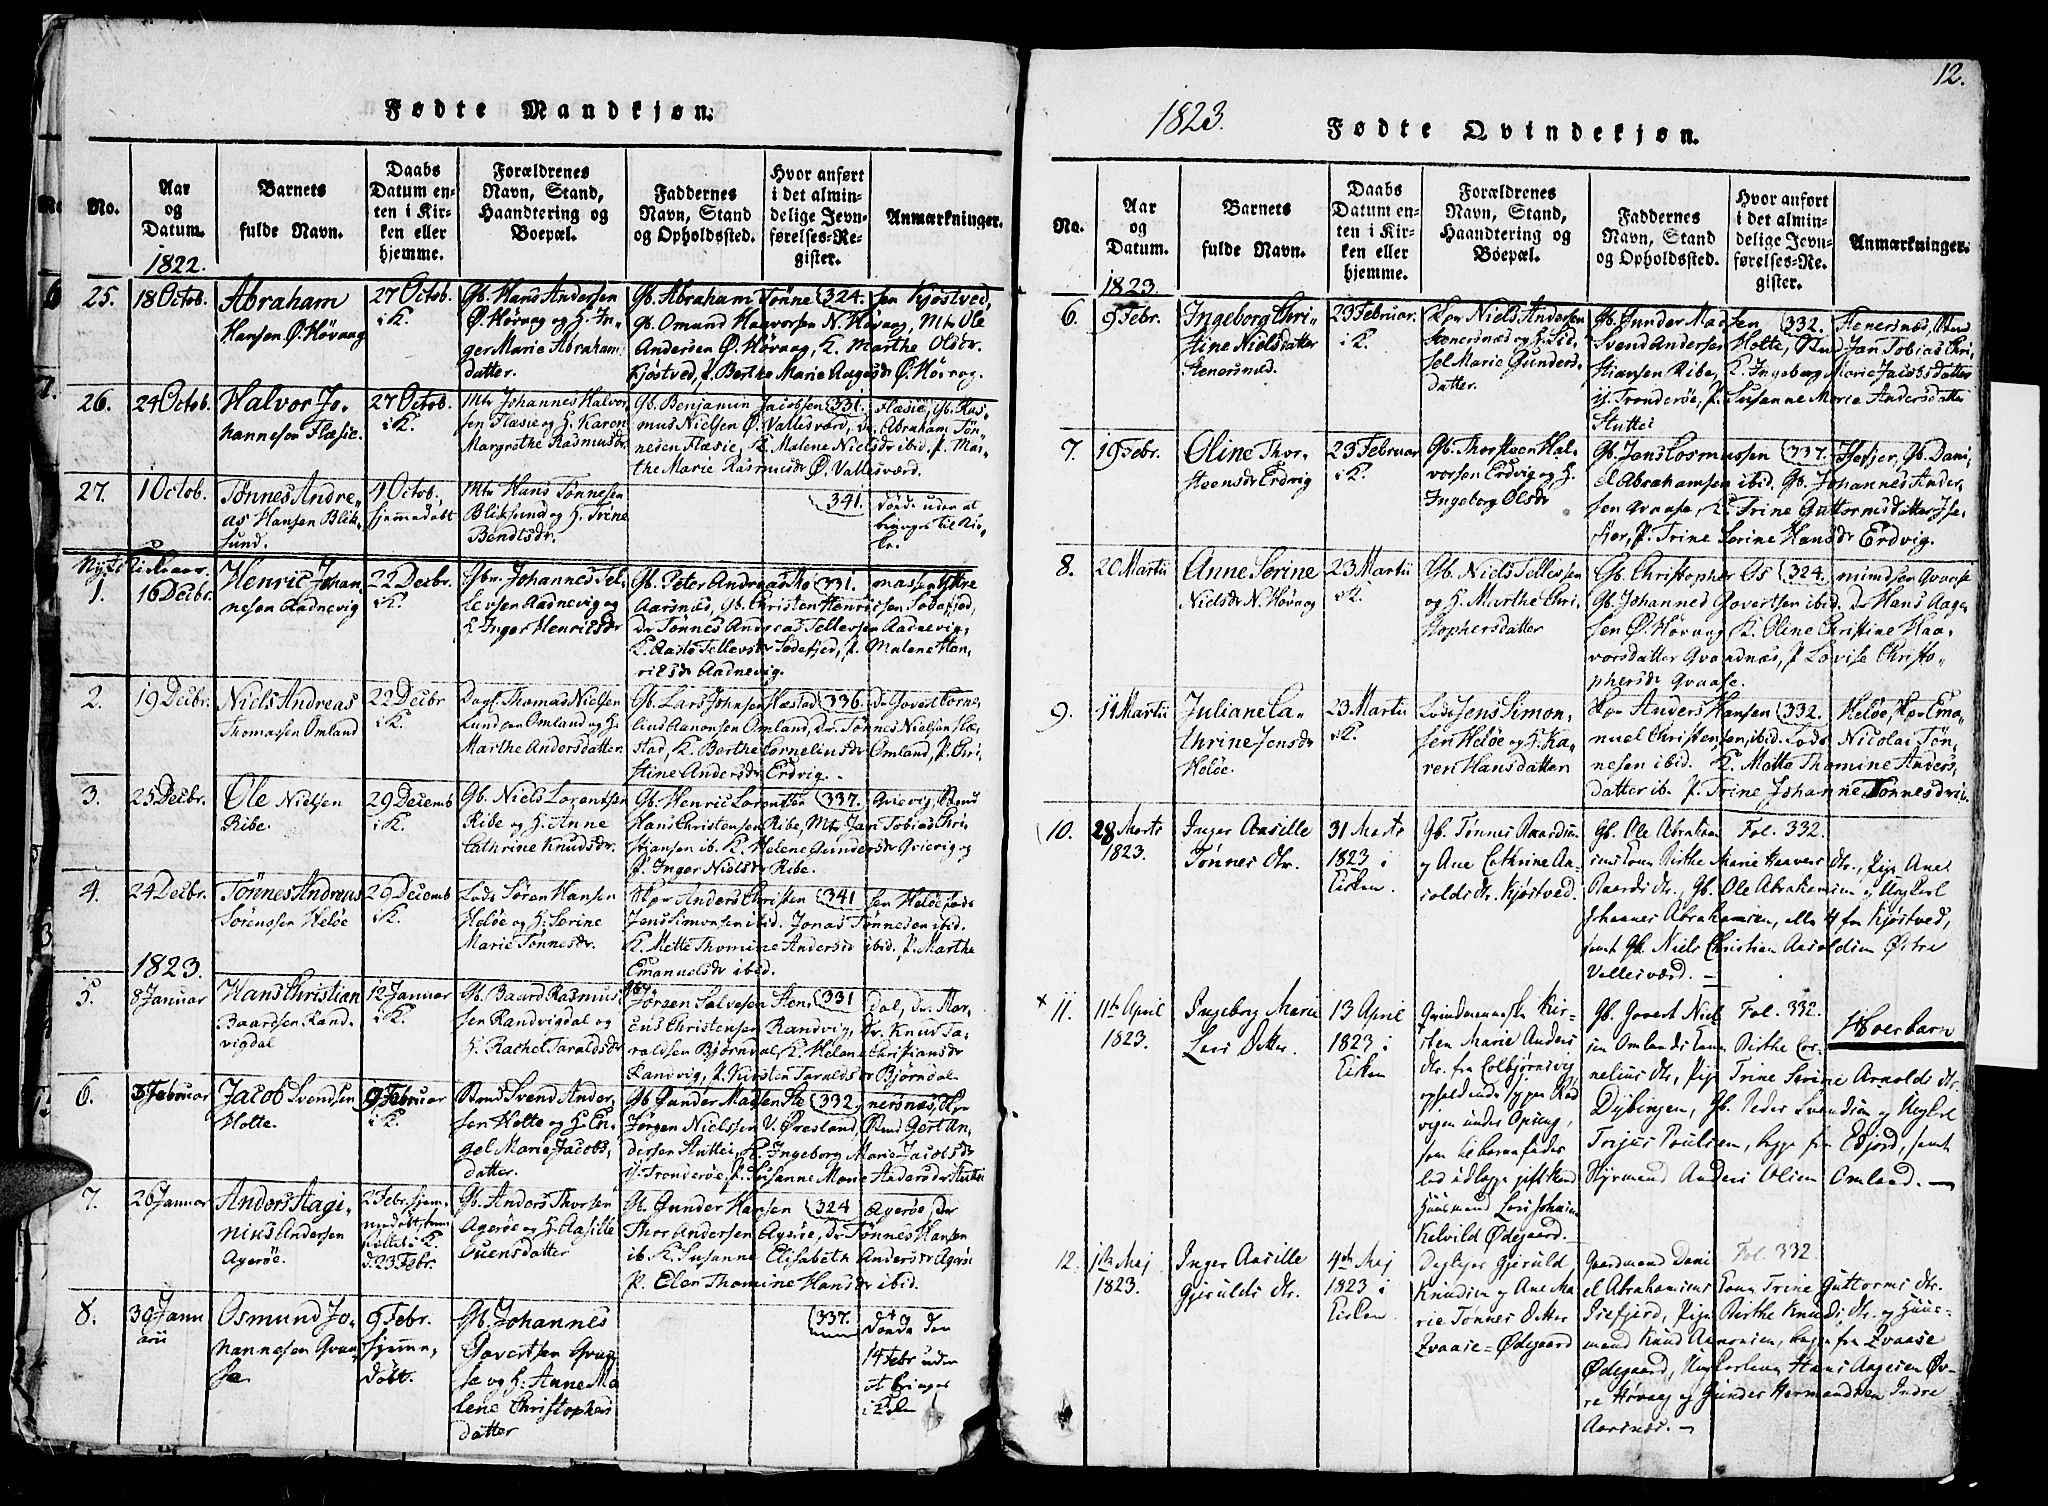 Fødte Mandkjøn.
No.
Aar
og
Datum.
Barnets
fulde Navn.
Daabs
Datum en-
ten i Kir-
ken eller
hjemme.
Forældrenes
Navn, Stand,
Haandtering og
Boepæl.
Faddernes
Navn, Stand
og Opholdssted.
Hvor anført
i det almin-
delige Jevn-
førelses-Re-
gister.
Anmærkninger.
1822.
25.
18 Octob.
Abraham
Hansen Ø. Høvaag
27 Octob.
i K.
Gb. Hans Andersen
Ø. Høvaag og H. In-
ger Marie Abraham
datter.
Gb. Abraham Tønne (324. sen Kjøstved,
Gb. Omund Haavorsen N. Høvaag, Mtr Ole
Andersen Ø. Høvaag, K. Marthe Olsdr.
Kjøstved, P. Berthe Marie Aagesdr Ø. Høvaag.
26.
24 Octob.
Halvor Jo-
hannesen Flæsie.
27 Octob.
i K.
Mtr Johannes Halvor
sen Flæsie og H. Karen
Margrethe Rasmusdr
Gb. Benjamin Jacobsen (331. Flæsie, Gb. Ras-
mus Nielsen Ø. Vallesværd, Dr. Abraham Tøn-
nesen Flæsie, K. Malene Nielsdr ibid. P. Mar-
the Marie Rasmusdr Ø. Vallesværd.
27.
1 Octob.
Tønnes Andre-
as Hansen Blik-
sund.
4 Octob.
hjemmedøbt
Mtr Hans Tønnesen
Bliksund og H. Trine
Bendtsdr.
341.
døde uden at
bringes til Kir-
ke.
Nyt Kirkeaar.
1.
16 Decbr.
Henric Johan
nesen Aadnevig
22 Decbr.
i K.
Gbr. Johannes Tel-
levsen Aadnevig og
H. Inger Henricsdr
Gb. Peter Andreas Tho (331. massen Ytre
Aarsnæs, Gb. Christen Henricsen Sødefjed,
Dr Tønnes Andreas Tellevsen Aadnevig,
K. Aaste Tellevsdr Sødefjed, P. Malene Hen-
ricsdr Aadnevig.
2.
19 Decbr.
Niels Andreas
Thomassen Omland
22 Decbr
i K.
Dagl. Thomas Nielsen
Lund paa Omland og H.
Marthe Andersdatter.
Gb. Lars Johnsen Hæstad (336. Dr Govert Corne-
lius Aanonsen Omland, Dr. Tønnes Nielsen Hæ-
stad, K. Berthe Corneliusdr Omland, P. Chri-
stine Andersdr Erdvig.
3.
25 Decbr.
Ole Nielsen
Ribe.
29 Decemb
i K.
Gb. Niels Lorentsen
Ribe og H. Anne
Cathrine Knudsdr.
Gb. Henric Lorentsen (337. Grievig, Rmd
Hans Christensen Ribe, Mtr Jan Tobias Chri
stiansen ib. K. Helene Gundersdr Grievig og
P. Inger Nielsdr Ribe.
4.
24 Decbr.
Tønnes Andreas
Sørenssen Heløe
29 Decemb
i K.
Lods Søren Hansen
Heløe og H. Serine
Marie Tønnesdr.
Skpr Anders Christen (341 sen Heløe Lods
Jens Simonsen ibid. Jonas Tønnesen ibid.
K. Mette Thomine Andersdr ibid. P. Marthe
Emanuelsdr ibid.
1823.
5.
8 Januar
Hans Christian
Baardsen Rand-
vigdal
12 Januar
i K.
Gb. Baard Rasmus
sen Randvigdal og
H. Rachel Taraldsdr
Jørgen Salvesen Sten (331 dal, Dr. Mar-
cus Christensen Randvig, Dr. Knud Ta-
raldsen Bjørndal, K. Helene Christiansdr
Randvig, P. Kirsten Taraldsdr Bjørndal
6.
3 Februar
Jacob Svendsen
Holte.
9 Februar
i K.
Rmd Svend Ander-
sen Holte og H. En-
gel Marie Jacobs-
datter.
Gb Gunder Madsen Ste (332. nersnæs, Skpr
Jørgen Nielssen V. Øresland, Rmd Gert An-
dersen Stuttei, K. Ingeborg Marie Jacobsdr
y. Tronderøe, P. Susanne Marie Andersdr Stuttei
7.
26 Januar
Anders Aagi-
nius Andersen
Agerøe.
2 Febr. hjem-
medøbt,
i K.
d. 23 Febr.
Gb. Anders Thorsen
Agerøe og H. Aasille
Guensdatter
Gb Gunder Hansen (324 Agerøe, Dr
Thor Andersen Aysøe, Dr Tønnes Hansen
ib. K. Susanne Elisabeth Andersdr Agerø
P. Elen Thomine Hansdr ibid.
8.
30 Janu
arii
Osmund Jo-
hannesen Qvaa-
se
9 Febr.
hjemme-
døbt.
Gb. Johannes
Govertsen Qvaa
se og H. Anne Ma
lene Christophers
datter
337.
døde den
14 Febr uden
at bringes
i Kirken
12.
1823.
Fødte Qvindekjøn.
No.
Aar
og
Datum.
Barnets
fulde Navn.
Daabs
Datum en-
ten i Kir-
ken eller
hjemme.
Forældrenes
Navn, Stand,
Haandtering og
Boepæl.
Faddernes
Navn, Stand
og Opholdssted.
Hvor anført
i det almin-
delige Jevn-
førelses-Re-
gister.
Anmærkninger.
1823.
6.
9 Febr.
Ingeborg Chri-
stine Nielsdatter
Stenersnæs.
23 Februar.
i K.
Skpr Niels Andersen
Stenersnæs og H. Sid-
sel Marie Gunders
datter.
Gb. Gunder Madsen (332. Stenersnæs, Rmd
Svend Andersen Holte, Rmd Jan Tobias Chri-
stiansen Ribe, K. Ingeborg Marie Jacobsdatter
y. Tronderøe, P. Susanne Marie Andersdatter
Stuttei
7.
19 Febr.
Oline Thor-
steensdr Erdvig
23 Februar
i K.
Gb. Thorsteen Hal-
vorsen Erdvig og H.
Ingeborg Olsdr
Gb. Jens Rosmussen (337. Isefjer, Gb. Dani-
el Abrahamsen ibid. Gb. Johannes Ander-
sen Qvaase, K. Trine Guttormsdatter Ise-
fier, P. Trine Serine Hansdr Erdvig.
8.
20 Martii
Anne Serine
Nielsdr N. Høvaag
23 Martii
i K.
Gb. Niels Tellefsen
og H. Marthe Chri-
stophersdatter
Gb. Christopher Os (324. mundsen Qvaase
Gb. Johannes Govertsen ibid. Dr Hans Aage-
sen Ø. Høvaag K. Oline Christine Haa-
vorsdatter Qvandnæs, P. Lovise Christo-
phersdr Qvaase.
9.
14 Martii
Juliane Ca-
thrine Jensdr
Heløe.
23 Martii
i K.
Lods Jens Simon-
sen Heløe og H. Ka-
ren Hansdatter
Skpr Anders Hansen (332. Heløe, Skpr Ema-
nuel Christensen, ibid. Lods Nicolai Tøn-
nesen ibid. K. Mette Thomine Anders-
datter ib. P. Trine Johanne Tønnesdr ib.
10.
28 Marts
1823.
Inger Aasille
Tønnes Dtr.
31 Marts
1823 i
Kirken
Gb. Tønnes Baardsen
og Ane Cathrine Aa-
roldsdtr. Kjøstved.
Gb. Ole Abraham Fol. 332.
sens Kone Birthe Marie Haavers Dtr., Pige Ane
Baards Dtr., Gb. Ole Abrahamsen og Ungkarl
Johannes Abrahamsen, alle 4 fra Kjøstved,
samt Gb. Niels Christian Aaroldsen Østre
Vallesværd. —
× 11.
11te April
1823.
Ingeborg Marie
Lars Datter.
13 April
1823 i
Kirken
Qvindemenneske Kir-
sten Marie Anders
Dtr. fra Colbjørnsvig
opholdende
vigen under
som
gift
Huusmand Lars Johan
Kelvild Ødegaard.
Gb. Govert Niel Fol. 332.
sen Omlands Kone Birthe Cor-
nelius Dtr., Pige Trine Serine Arnolds Dtr.
Dybingen, Gb. Peder Svendsen og Ungkarl
Terjus Poulsen, begge fra Edjord, samt
Styrmand Anders Olsen Omland. —
Hoerbarn
12.
1te Maj
1823.
Inger Aasille
Gjerulds Dtr.
4de Maj
1823 i
Kirken
Gjeruld
Knudsen og Ane Ma-
rie Tønnes Datter
Qvaase-Ødegaard
Gaardmand Dani Fol. 332.
el Abrahamsens Kone Trine Guttorms Dtr.
Isefjord, Pige Birthe Knuds Dtr. og Huus-
mand Knud Aanonsen, begge fra Qvaase
Ødegaard, Ungkarlene Hans Aagesen Øv-
re Høvaag og Gunder Hermandsen Indre
Aarsnæs. —